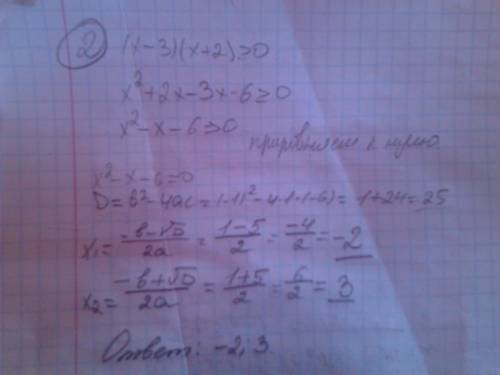 2 (x-3)(x+2)≥0
x²+2x-3x-6≥0
x²-x-6≥0
приравняем к нулю
x²-x-6=0
D=b²-4ac=(-1)²-4·1·(-6)=1+24=25
x₁=\frac{-b-√D}{2a}=\frac{1-5}{2}=\frac{-4}{2}=-2
x₂=\frac{-b+√D}{2a}=\frac{1+5}{2}=\frac{6}{2}=3
Ответ: -2; 3.